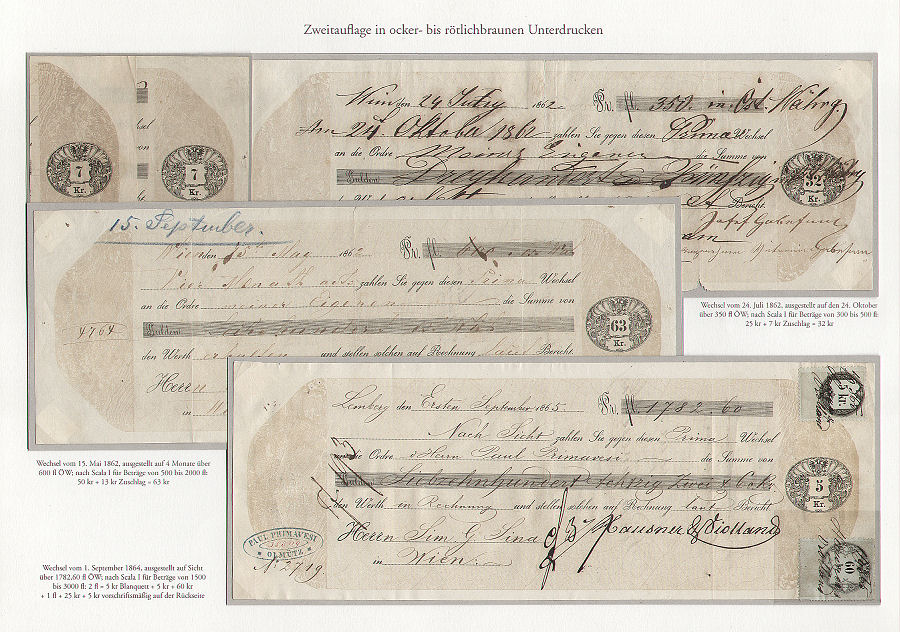 Zweitauflage in ocker- bis rötlichbraunen Unterdrucken
7
Kr.
7
Kr.
Wien den 24 July 1862 Pr. fl. 350. in Öst. Währg
Am 24. Oktober 1862 zahlen Sie gegen diesen Prima Wechsel
an die Ordre Meines Eigenen die Summe von
Gulden
32
Kr.
Bericht.
Wechsel vom 24. Juli 1862, ausgestellt auf den 24. Oktober
über 350 fl ÖW; nach Scala I für Beträge von 300 bis 500 fl:
25 kr + 7 kr Zuschlag = 32 kr
15. September.
Wien den 15 May 1862 Pr. fl. 600
Vier Monath a dato zahlen Sie gegen diesen Prima Wechsel
an die Ordre die Summe von
4764
Gulden
den Werth erhalten und stellen solchen auf Rechnung laut Bericht.
Herrn
in
63
Kr.
Wechsel vom 15. Mai 1862, ausgestellt auf 4 Monate über
600 fl ÖW; nach Scala I für Beträge von 500 bis 2000 fl:
50 kr + 13 kr Zuschlag = 63 kr
Lemberg den Ersten September 1865. Pr. fl. 1782.60
Nach Sicht zahlen Sie gegen diesen Prima Wechsel
an die Ordre d Herrn Paul Primavesi die Summe von
Siebzehnhundert achtzig zwei & 60 kr
den Werth in Rechnung und stellen solchen auf Rechnung laut Bericht
Herrn Sim. G. Sina Hausner & Violland
in Wien
PAUL PRIMAVESI
OLMÜTZ
No. 2719
5 kr.
5
Kr.
60
Wechsel vom 1. September 1864, ausgestellt auf Sicht
über 1782,60 fl ÖW; nach Scala I für Beträge von 1500
bis 3000 fl: 2 fl = 5 kr Blanquett + 5 kr + 60 kr
+ 1 fl + 25 kr + 5 kr vorschriftsmäßig auf der Rückseite